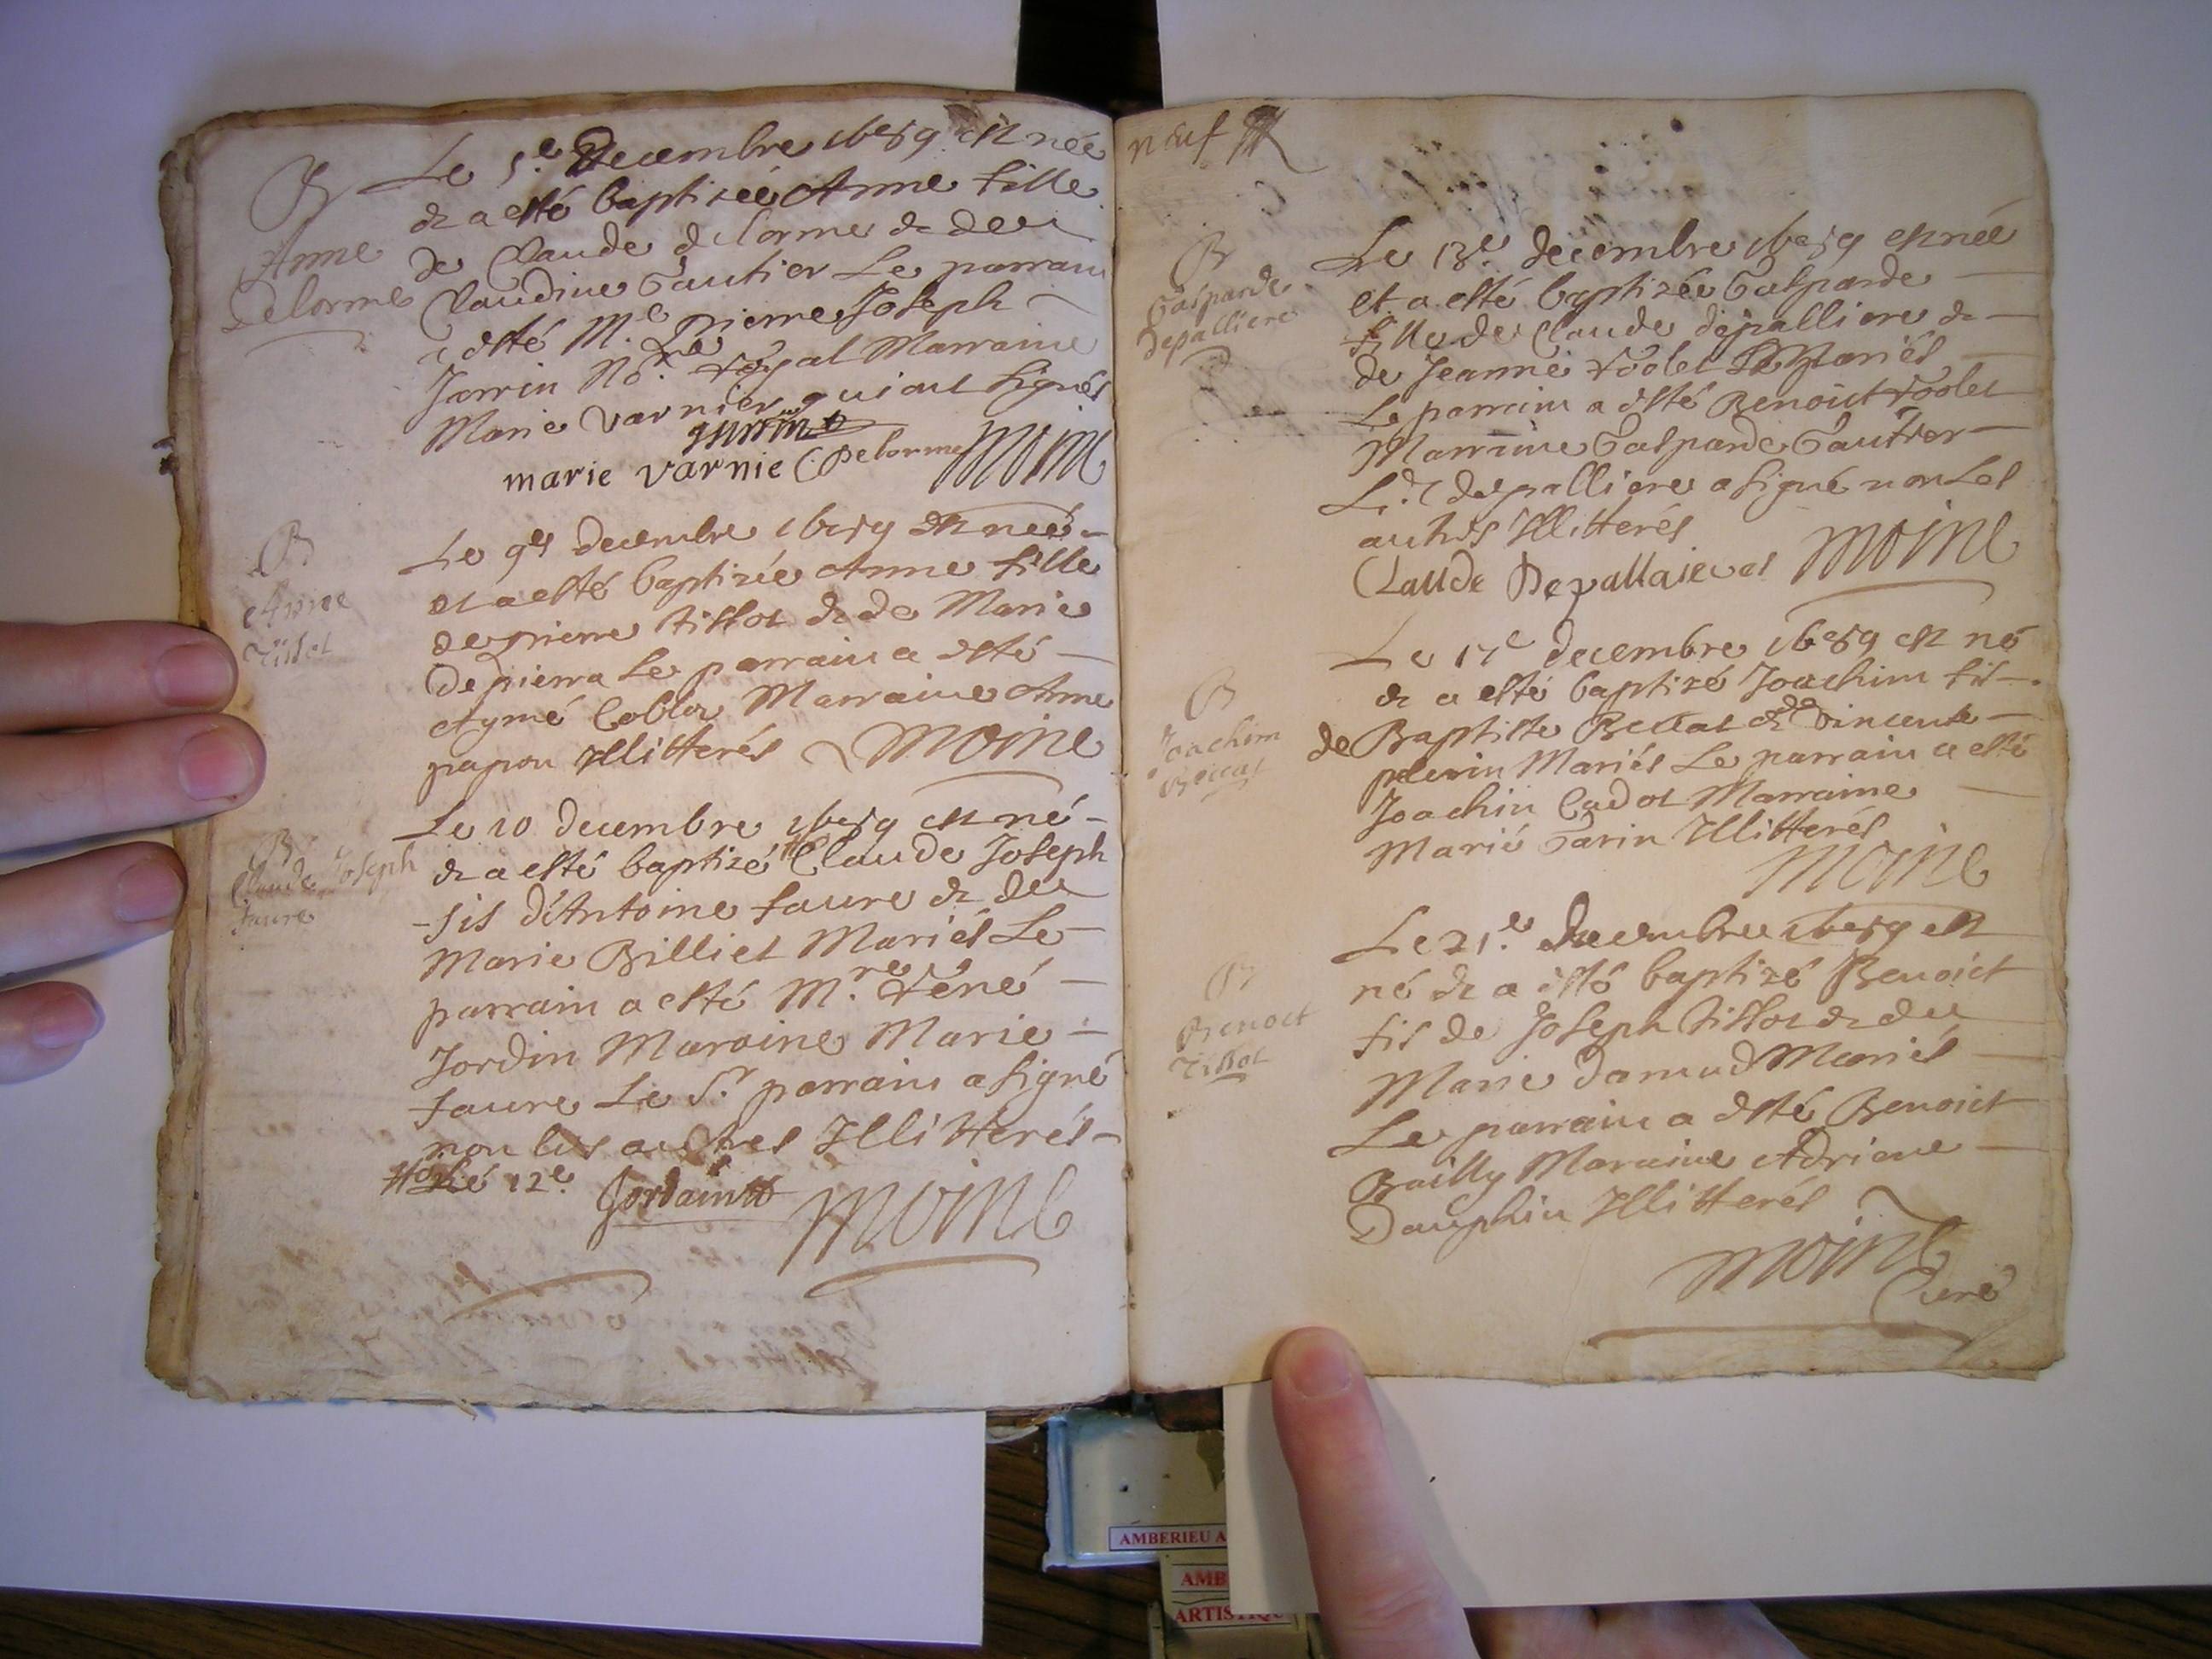 B
Anne
Delorme
Le 5.e Decembre 1689 est née
& a esté baptizée Anne fille
de Claude delorme & de
Claudine Gautier Le parrain
a esté M.e Pierre Joseph
Jarrin No.re royal Marraine
Marie Varnier qui ont signés
marie varnie C. Delorme Moine
B
Anne
Tissot
Le 9e decembre 1689 est née
et a esté baptizée Anne fille
de pierre tissot & de Marie
Depierra Le parrain a esté
Aymé Marraine Anne
papon Illitterés Moine
B
Claude Joseph
faure
Le 10 decembre 1689 est né
& a esté baptizé Claude Joseph
fis d'Antoine faure & de
Marie Billiet Mariés Le
parrain a esté M.re René
Jordin Maraine Marie
faure Le S.r parrain a signé
non les autres Illitterés
12e. Jordain Moine
neuf
B
Gasparde
depalliere
Le 13.e decembre 1689 est née
et a esté baptizée Gasparde
fille de Claude depalliere &
de Jeanne rodet Mariés
Le parrain a esté Benoist rodet
Marraine Gasparde Gautier
Led. depalliere a signé non Les
autres Illitterés
Claude Moine
B
Joachim
Beccat
Le 17e decembre 1689 est né
& a esté baptizé Joachim fis
de Baptiste Beccat & de Vincente
pelerin Mariés Le parrain a esté
Joachin Cadot Marraine
Marie Garin Illitterés
Moine
B
Benoict
Tissot
Le 21.e decembre 1689 est
né & a esté baptizé Benoict
fis de Joseph tissot & de
Marie Damud Mariés
Le parrain a esté Benoict
Bailly Maraine Adriene
Dauphin Illitterés
Moine
Curé
AMBERIEU A
AMB
ARTISTIQU